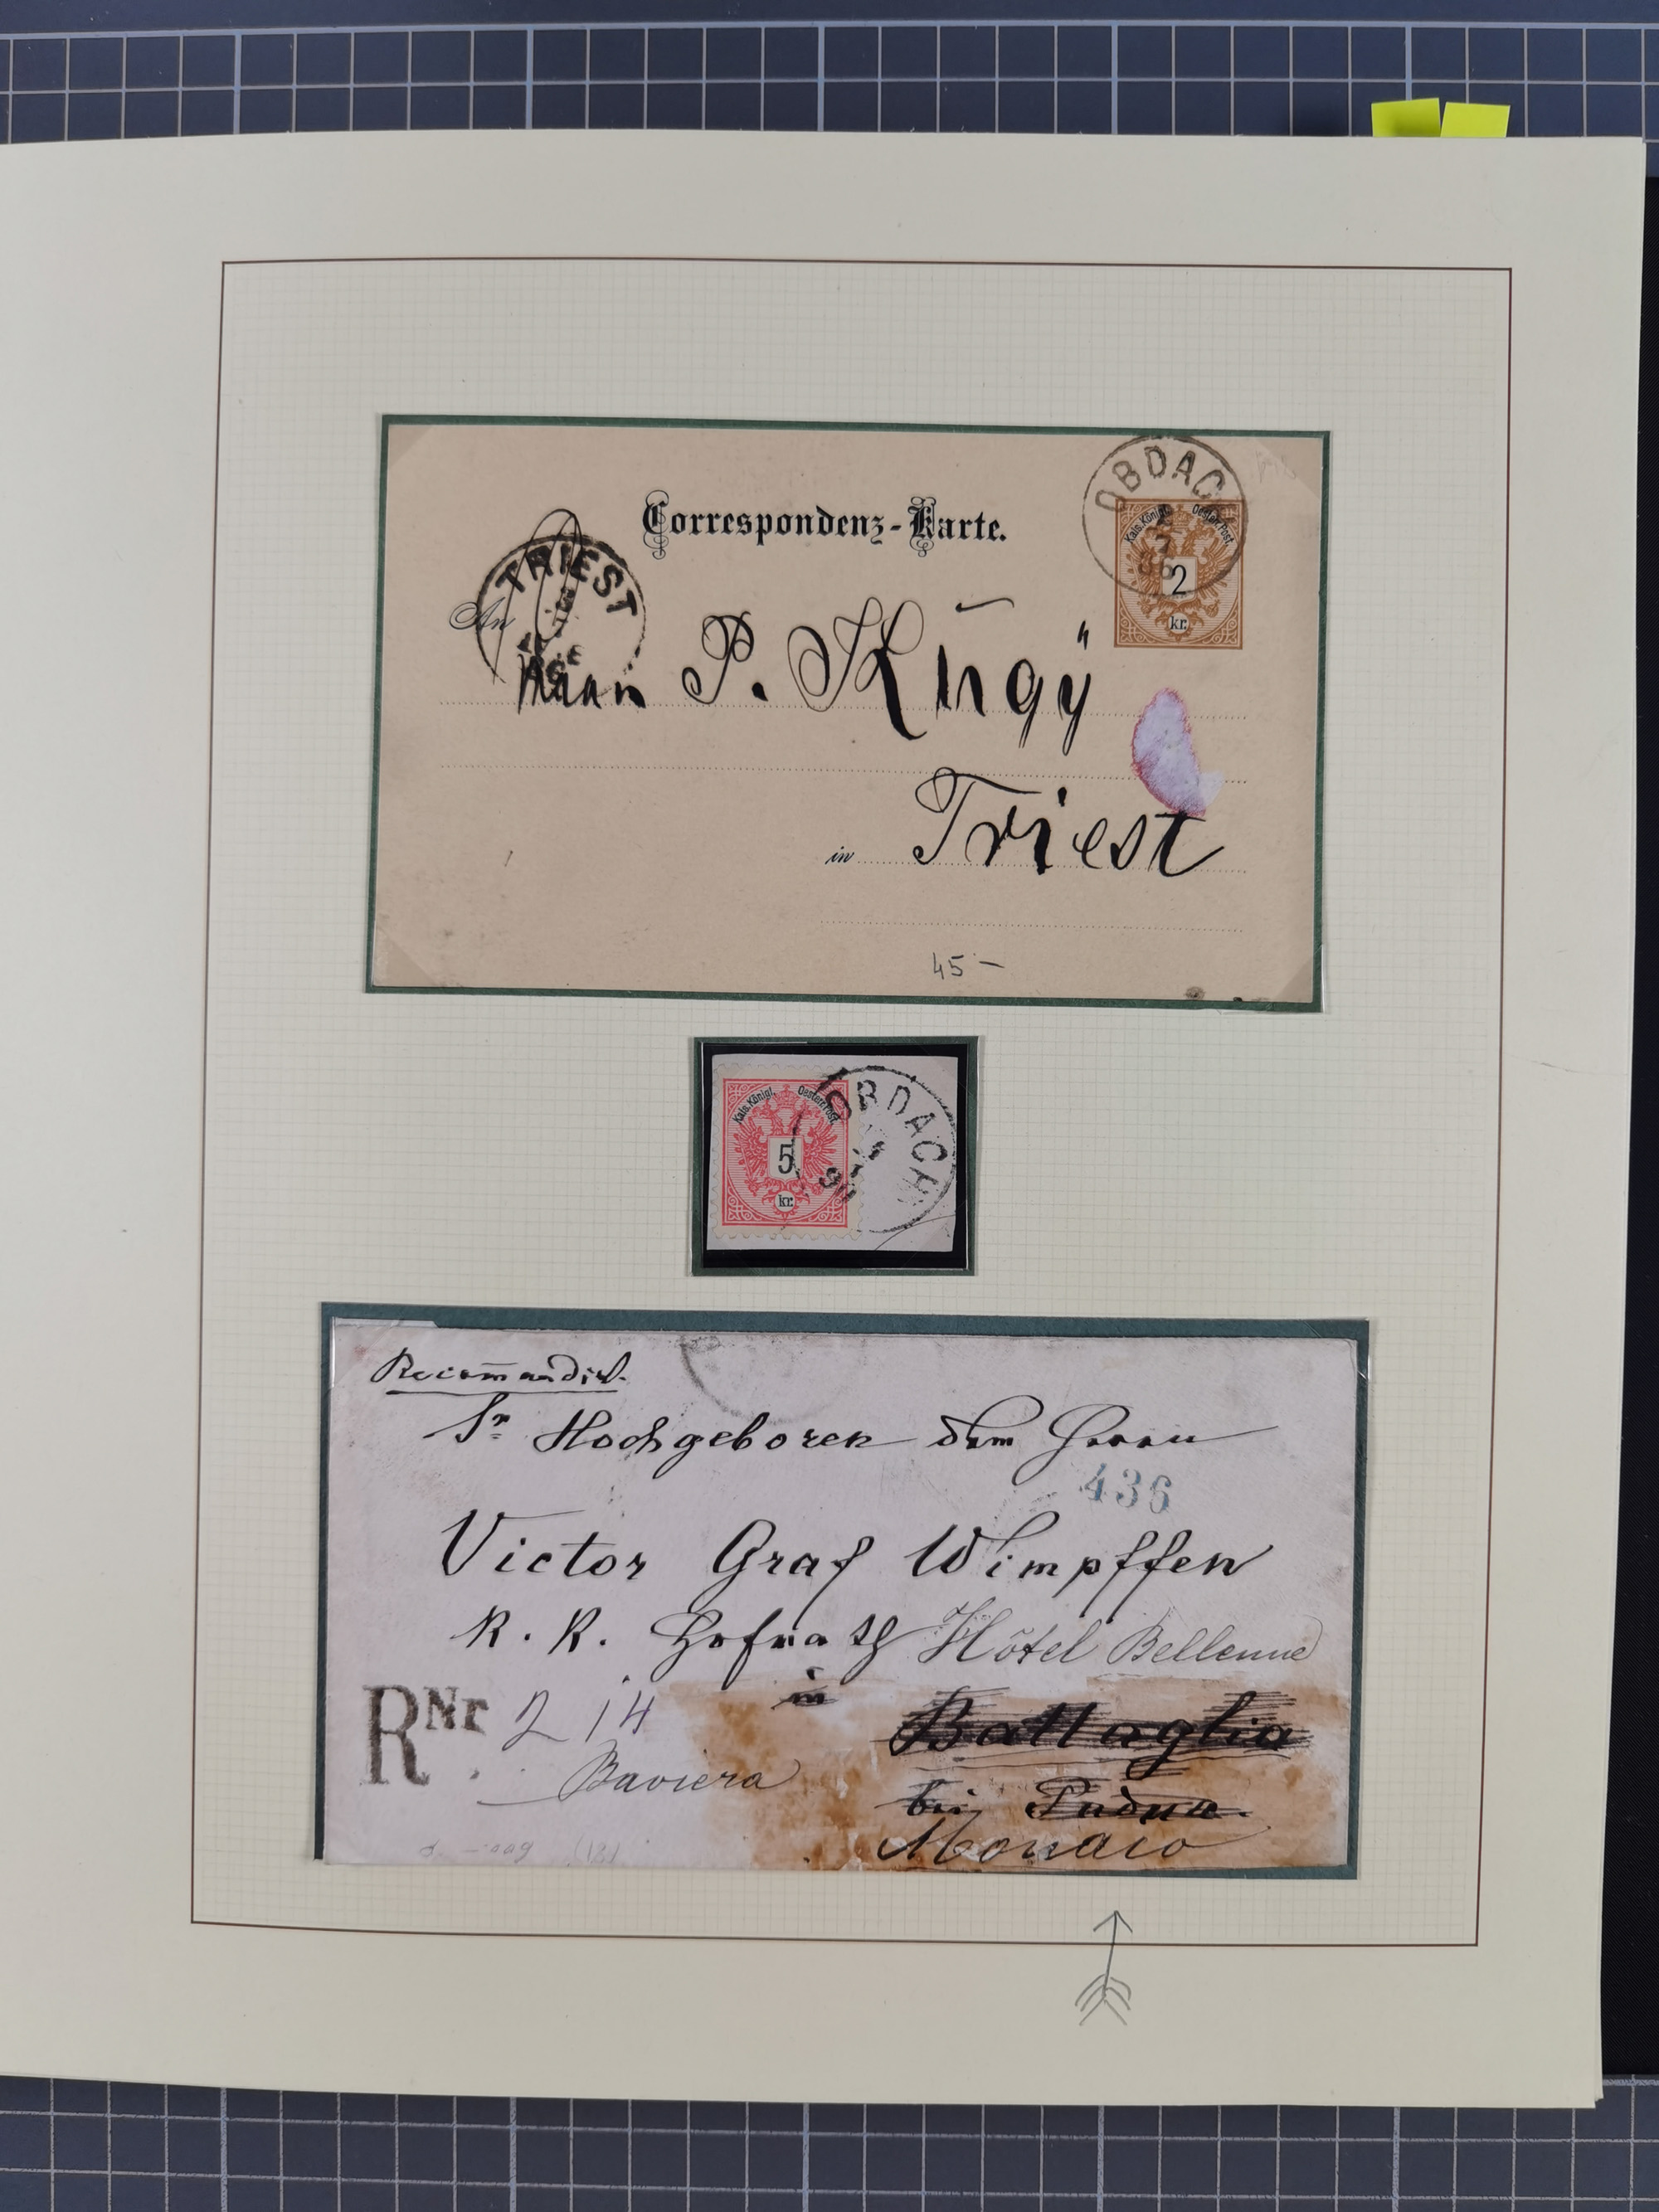 Correspondenz-Karte.
OBDACH
Kais. Königl. Oesterr. Post.
7
86
2
kr.
TRIEST
An
Herrn P. Kúgÿ
in Triest
45 –
Kais. Königl. Oesterr. Post.
5
kr.
OBDACH
90
Recom̄andirt.
Sr Hochgeboren dem Herrn
436
Victor Graf Wimpffen
K. K. Hofrath Hôtel Bellevue
in
RNr 214
Battaglia
Baviera
bei Padua.
Monaco